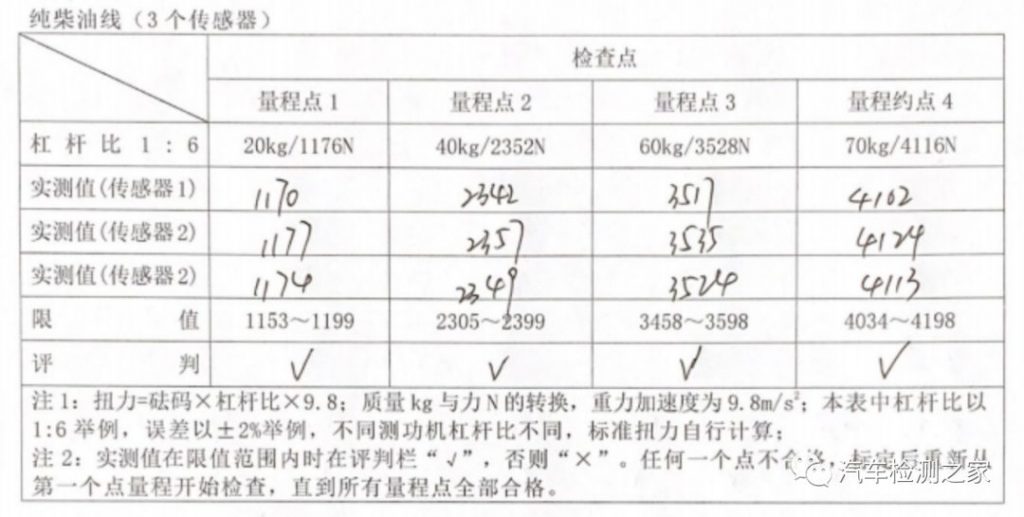 纯柴油线（3个传感器）
检查点
量程点1 量程点2 量程点3 量程约点4
杠杆比1:6 20kg/1176N 40kg/2352N 60kg/3528N 70kg/4116N
实测值(传感器1) 1170 2342 3517 4102
实测值(传感器2) 1177 2357 3535 4124
实测值(传感器2) 1174 2349 3524 4113
限值 1153～1199 2305～2399 3458～3598 4034～4198
评判 √ √ √ √
注1：扭力=砝码×杠杆比×9.8；质量kg与力N的转换，重力加速度为9.8m/s²；本表中杠杆比以
1:6举例，误差以±2%举例，不同测功机杠杆比不同，标准扭力自行计算；
注2：实测值在限值范围内时在评判栏“√”，否则“×”。任何一个点不合格，标定后重新从
第一个点量程开始检查，直到所有量程点全部合格。
汽车检测之家